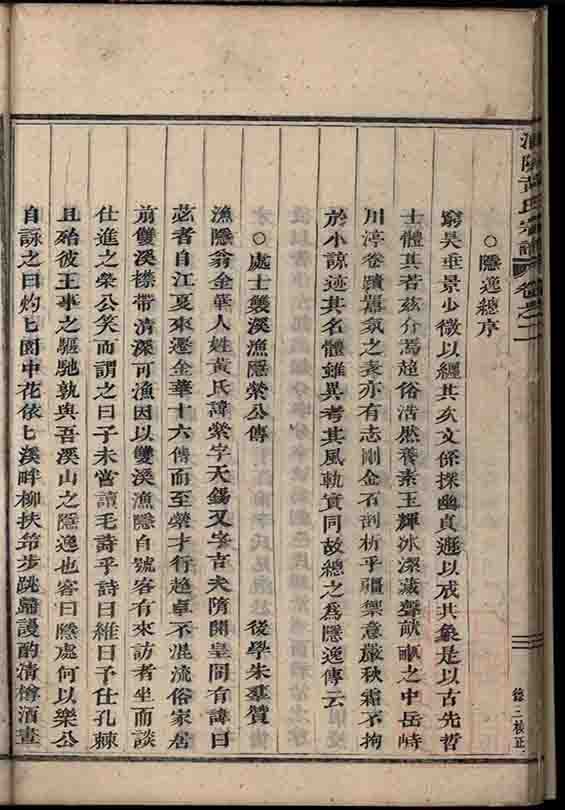 浦陽黃氏宗譜 卷之二
○隱逸總序
窮昊垂景少微以纏其次文係探幽貞遯以成其象是以古先哲
士體其若茲介焉超俗浩然養素玉輝冰潔藏聲畎畝之中岳峙
川渟卷蹟囂氛之表亦有志剛金石剖析乎疆禦意嚴秋霜不拘
於小諒迹其名體雖異考其風軌實同故總之為隱逸傳云
○處士雙溪漁隱榮公傳 後學朱 贊
漁隱翁金華人姓黃氏諱榮字天錫又字吉夫隋開皇間有諱曰
苾者自江夏來遷金華十六傳而至榮才行超卓不混流俗家居
前雙溪襟帶清深可漁因以雙溪漁隱自號客有來訪者坐而談
仕進之榮公笑而謂之曰子未嘗讀毛詩乎詩曰維日予仕孔棘
且殆彼王事之驅馳孰與吾溪山之隱逸也客曰隱處何以樂公
自詠之曰灼匕園中花依匕溪畔柳扶筇步跳 謾酌清樽酒晝
徐三校正